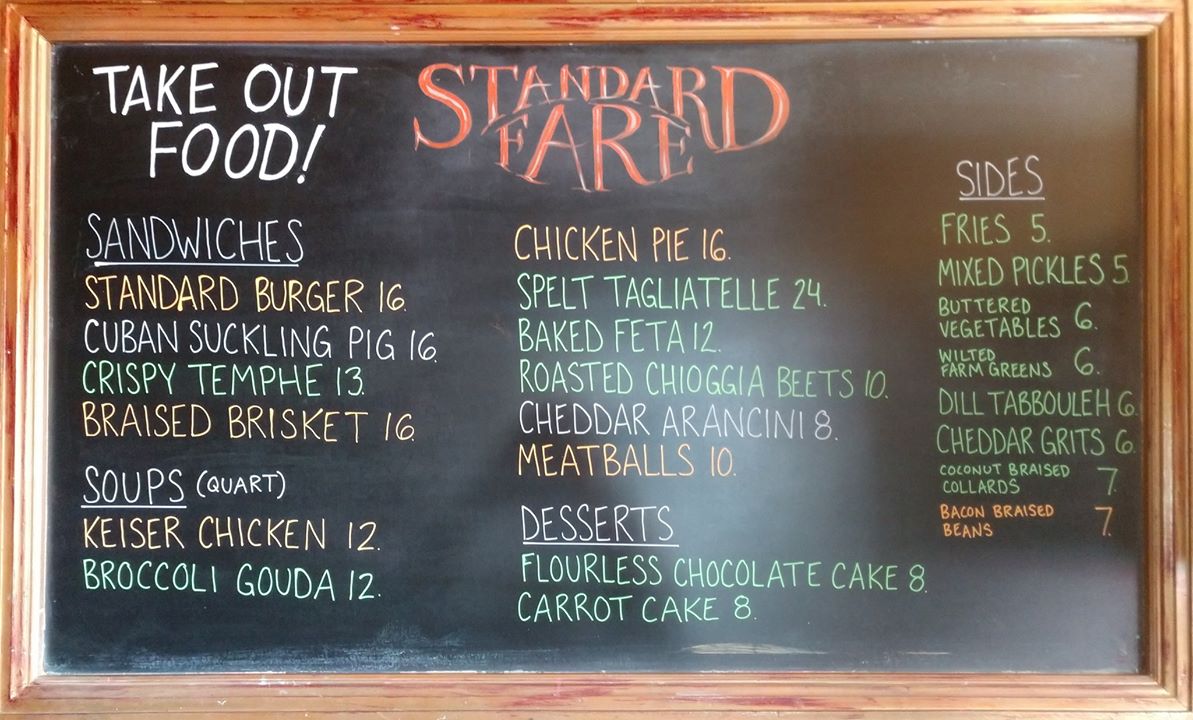 TAKE OUT
FOOD!
STANDARD
FARE
SANDWICHES
STANDARD BURGER 16.
CUBAN SUCKLING PIG 16.
CRISPY TEMPHE 13.
BRAISED BRISKET 16.
SOUPS (QUART)
KEISER CHICKEN 12.
BROCCOLI GOUDA 12.
CHICKEN PIE 16.
SPELT TAGLIATELLE 24.
BAKED FETA 12.
ROASTED CHIOGGIA BEETS 10.
CHEDDAR ARANCINI 8.
MEATBALLS 10.
DESSERTS
FLOURLESS CHOCOLATE CAKE 8.
CARROT CAKE 8.
SIDES
FRIES 5.
MIXED PICKLES 5.
BUTTERED
VEGETABLES 6.
WILTED
FARM GREENS 6.
DILL TABBOULEH 6.
CHEDDAR GRITS 6.
COCONUT BRAISED
COLLARDS 7.
BACON BRAISED
BEANS 7.